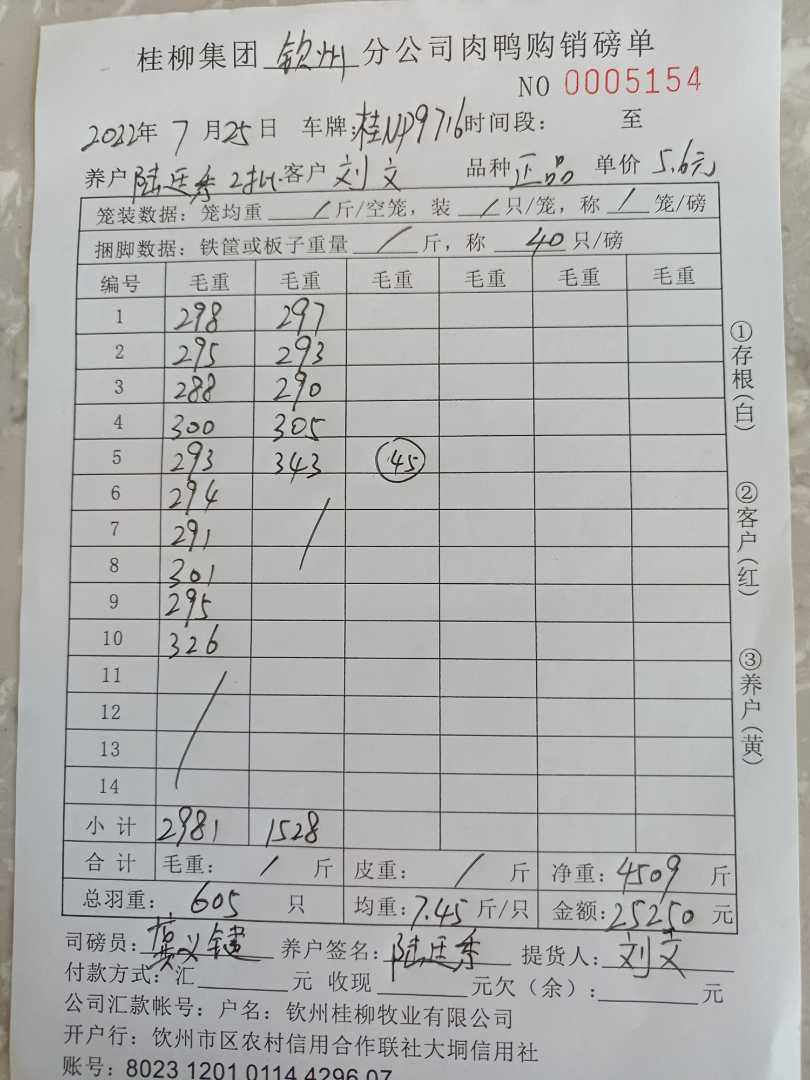 桂柳集团 钦州 分公司肉鸭购销磅单
NO 0005154
2022年 7月25日 车牌:桂NP9716 时间段: 至
养户 陆廷秀 2批 客户 刘文 品种 正品 单价 5.6元
笼装数据: 笼均重 / 斤/空笼, 装 / 只/笼, 称 / 笼/磅
捆脚数据: 铁筐或板子重量 / 斤, 称 40 只/磅
编号 毛重 毛重 毛重 毛重 毛重 毛重
1 298 297
2 295 293
3 288 290
4 300 305
5 293 343 45
6 294 /
7 291
8 301
9 295
10 326
11 /
12
13
14
小计 2981 1528
合计 毛重: / 斤 皮重: / 斤 净重: 4509 斤
总羽重: 605 只 均重: 7.45 斤/只 金额: 25250 元
司磅员: 龚义键 养户签名: 陆廷秀 提货人: 刘文
付款方式: 汇 元 收现 元欠(余): 元
公司汇款帐号: 户名: 钦州桂柳牧业有限公司
开户行: 钦州市区农村信用合作联社大垌信用社
账号: 8023 1201 0114 4296 07
①存根(白)
②客户(红)
③养户(黄)